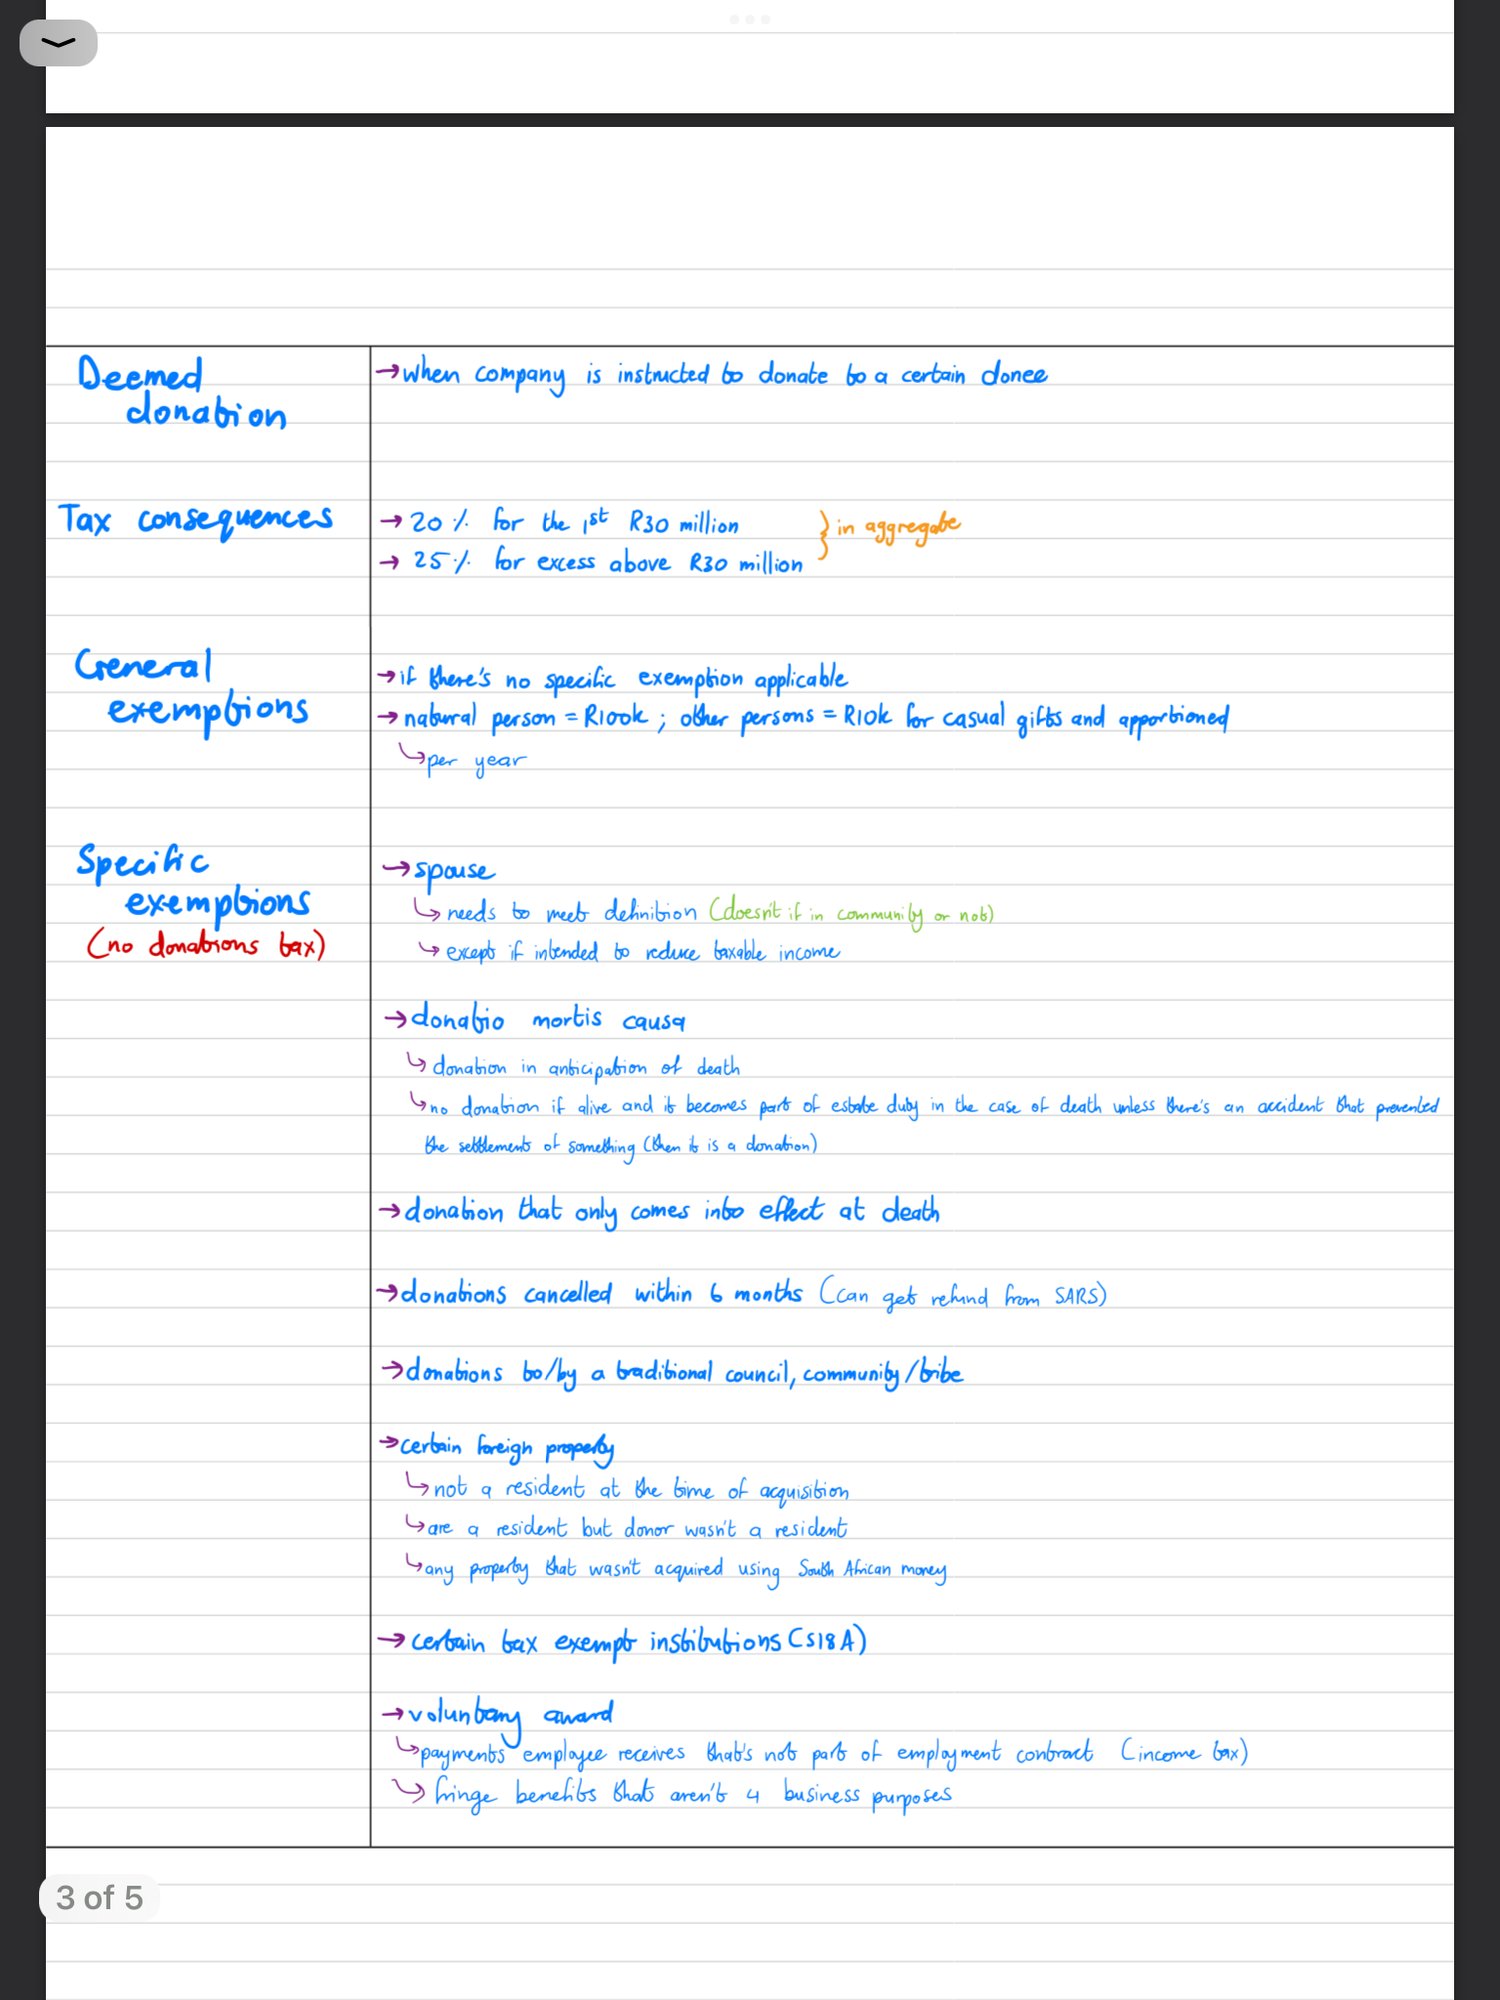 Deemed
donation
→ when company is instructed to donate to a certain donee
Tax consequences
→ 20% for the 1st R30 million
→ 25% for excess above R30 million
} in aggregate
General
exemptions
→ if there's no specific exemption applicable
→ natural person = R100k ; other persons = R10k for casual gifts and apportioned
↳ per year
Specific
exemptions
(no donations tax)
→ spouse
↳ needs to meet definition (doesn't if in community or not)
↳ except if intended to reduce taxable income
→ donatio mortis causa
↳ donation in anticipation of death
↳ no donation if alive and it becomes part of estate duty in the case of death unless there's an accident that prevented
the settlement of something (then it is a donation)
→ donation that only comes into effect at death
→ donations cancelled within 6 months (can get refund from SARS)
→ donations to/by a traditional council, community/tribe
→ certain foreign property
↳ not a resident at the time of acquisition
↳ are a resident but donor wasn't a resident
↳ any property that wasn't acquired using South African money
→ certain tax exempt institutions (S18A)
→ voluntary award
↳ payments employee receives that's not part of employment contract (income tax)
↳ fringe benefits that aren't 4 business purposes
3 of 5